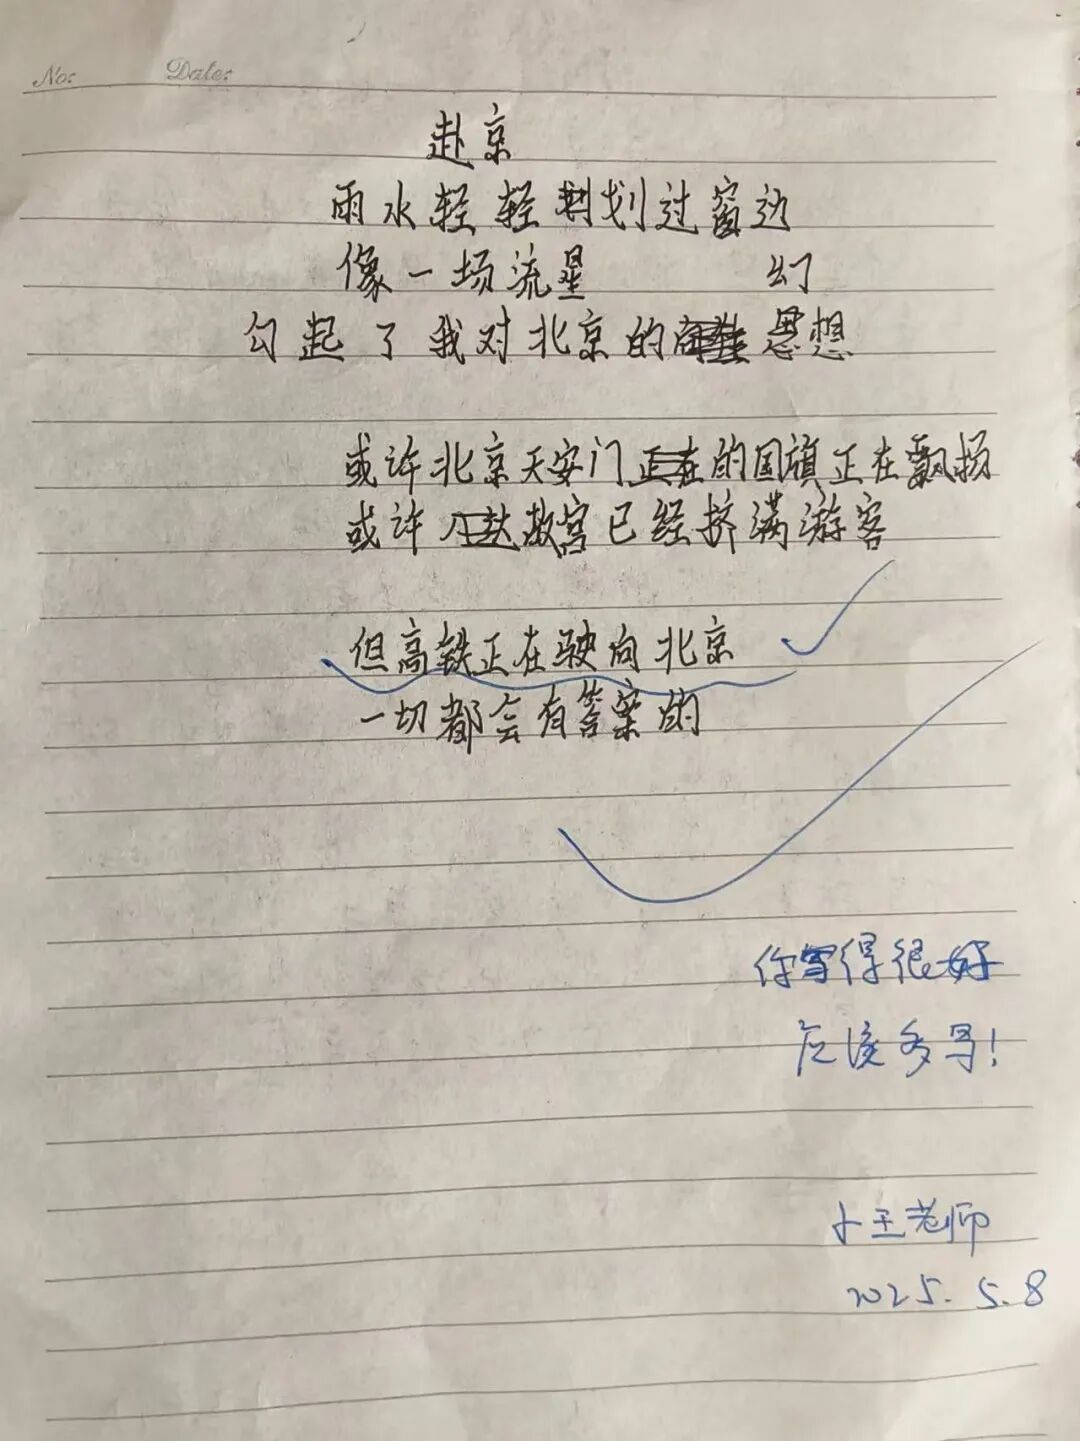 No: Date:
赴京
雨水轻轻划过窗边
像一场流星 幻
勾起了我对北京的思想
或许北京天安门正在的国旗正在飘扬
或许故宫已经挤满游客
但高铁正在驶向北京
一切都会有答案的
你写得很好
应该多写!
卜王老师
2025.5.8